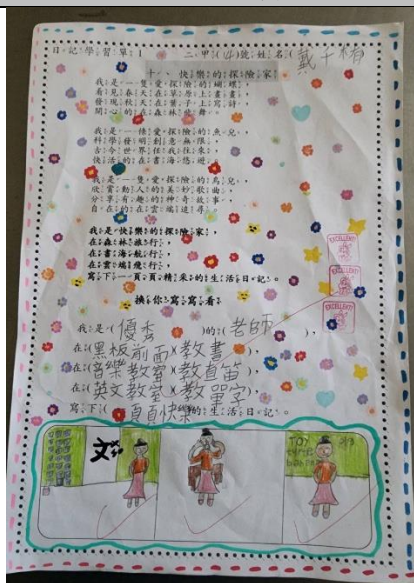 日記學習單1 二甲(14)號姓名(戴千楉)
十、快樂的探險家
我是一隻愛探險的蝴蝶,
看見春天在草原上畫畫,
發現秋天在葉子上寫詩,
開心的在森林飛舞。
我是一條愛探險的魚兒,
科學發明創意無限,
古今世界任我往來,
快活的在書海悠遊。
我是一隻愛探險的鳥兒,
欣賞動人的美妙歌曲,
分享有趣的神奇故事,
自在的在雲端追尋。
我是快樂的探險家,
在森林旅行,
在書海航行,
在雲端飛行,
寫下一頁頁精采的生活日記。
換你寫寫看
我是(優秀)的(老師),
在(黑板前面)(教書),
在(音樂教室)(教直笛),
在(英文教室)(教單字),
寫下(一頁頁快樂)的生活日記。
EXCELLENT!
EXCELLENT!
EXCELLENT!
文